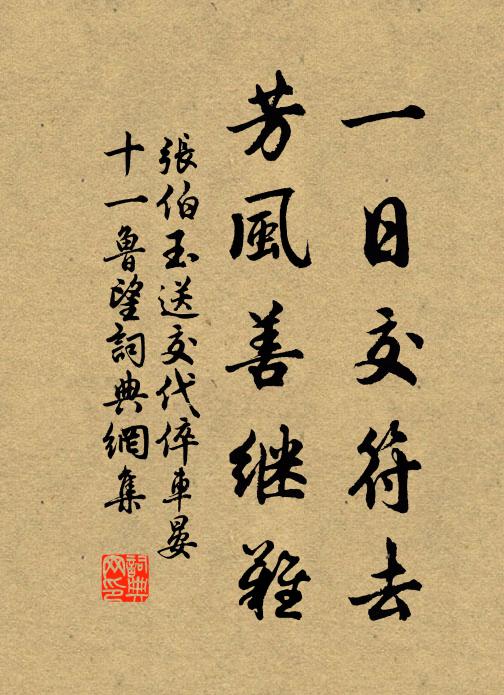 一日交符去
芳風善继難
張伯玉送交代倅車晏
十一魯望詞典網集
詞典网印